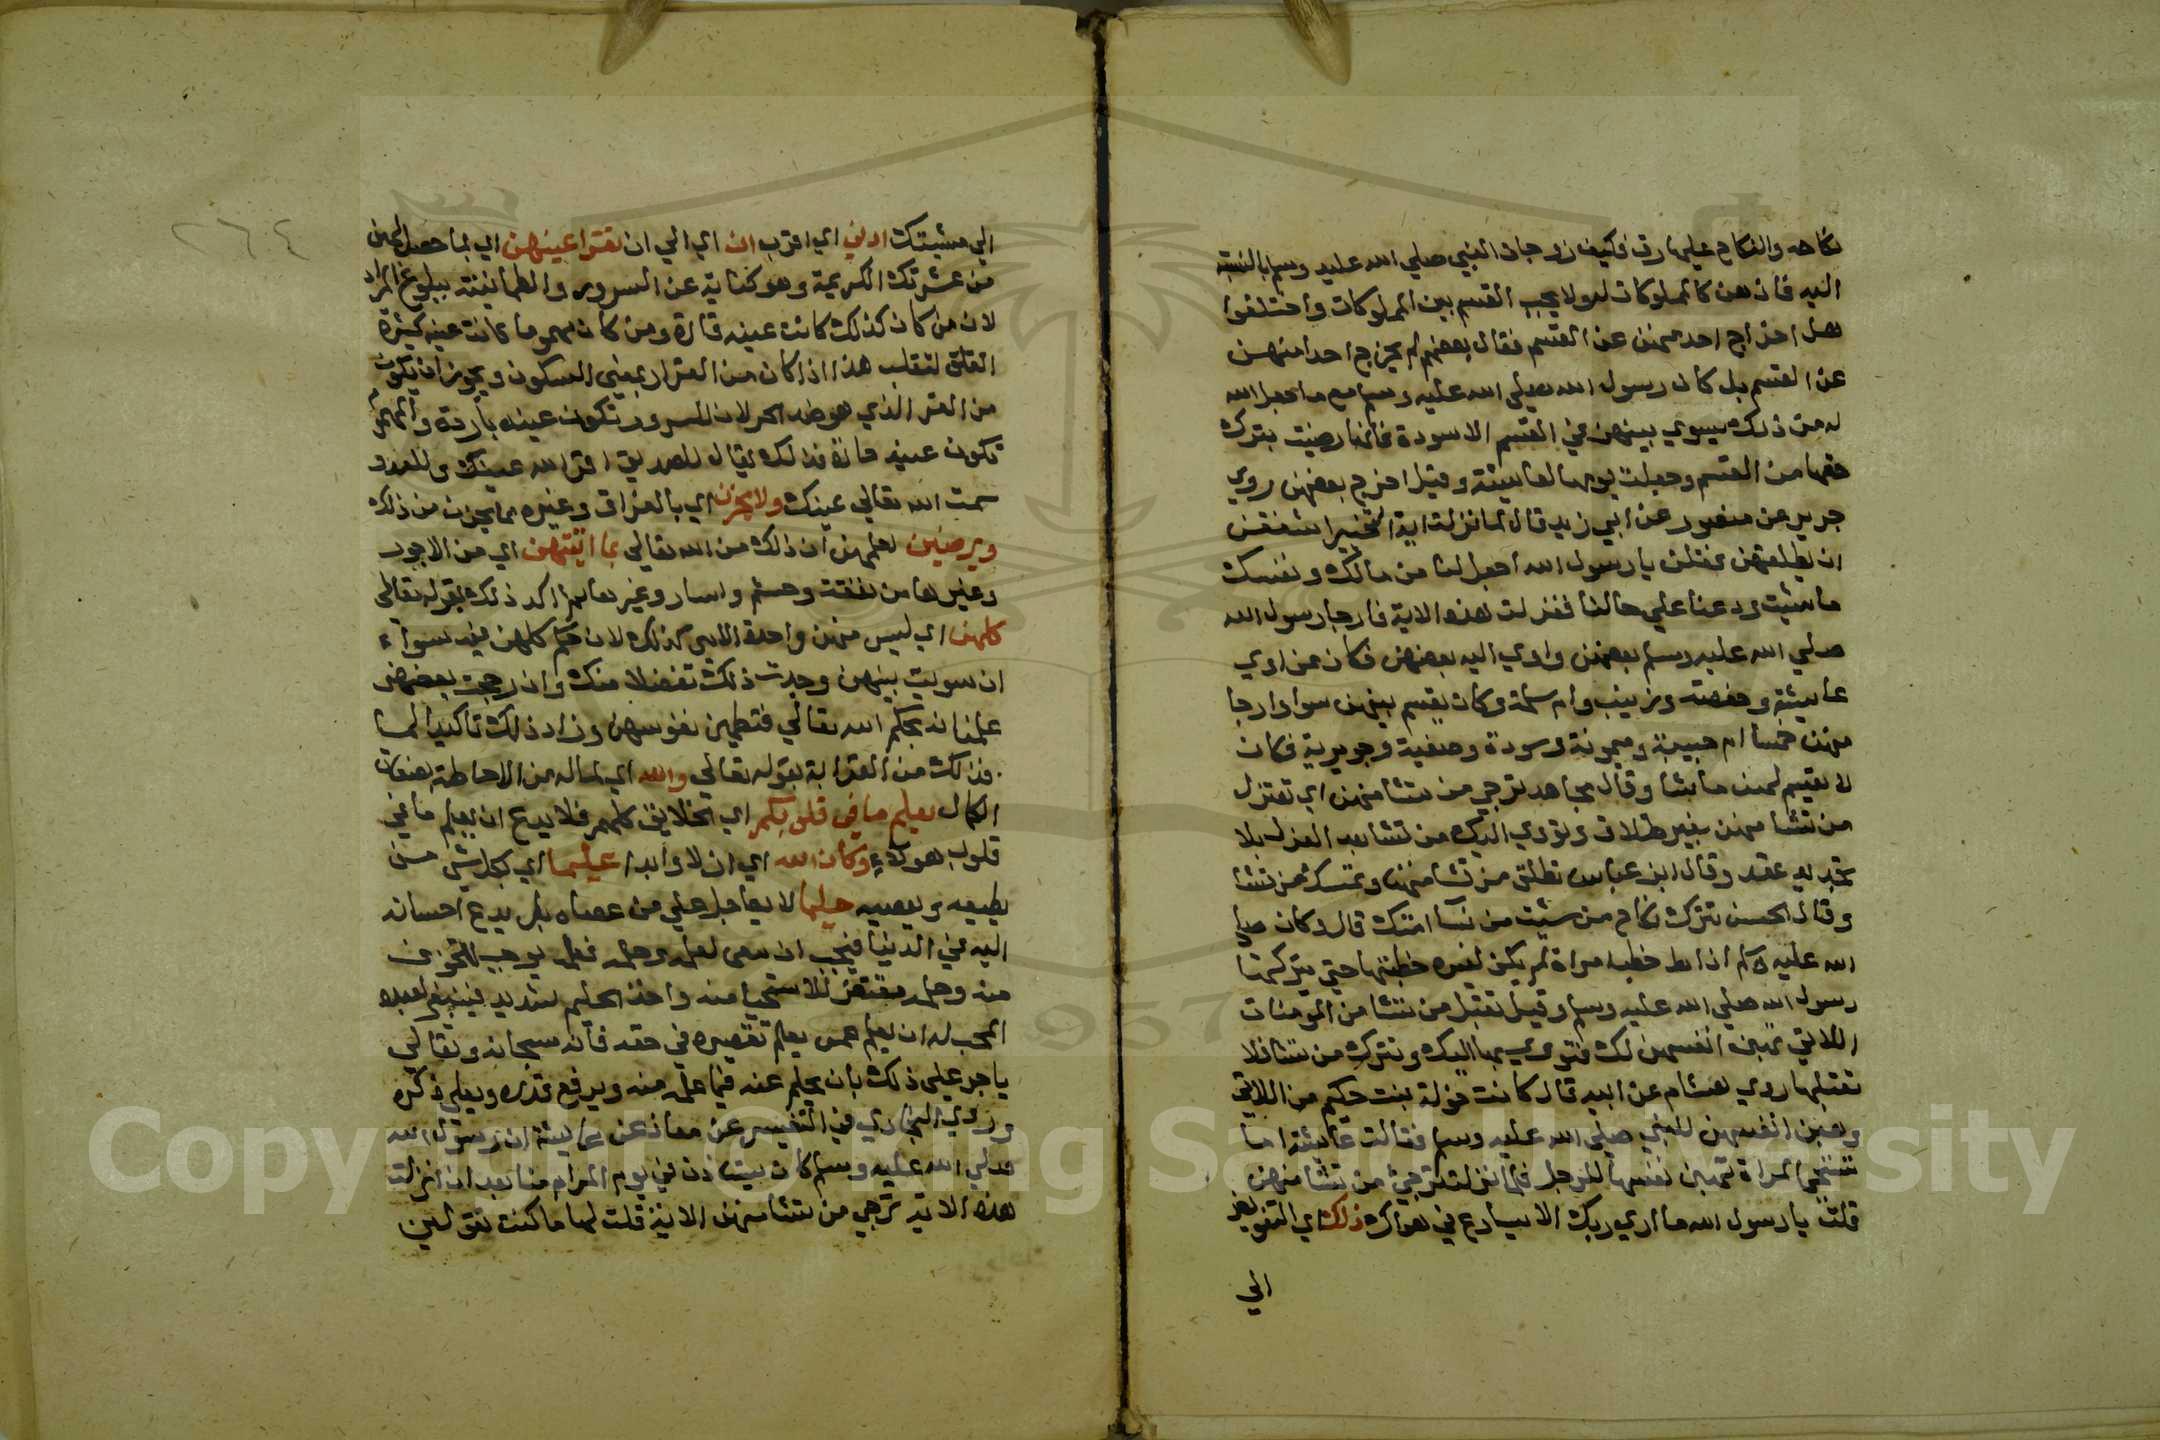 نكاحه والنكاح عليها رق فكيف زوجات النبي صلي الله عليه وسلم بالنسبة
اليه فان هن كالمملوكات له ولا يجب القسم بين المملوكات واختلفوا
هل اخراج احد منهن عن القسم فقال بعضهم لم يخرج احدا منهن
عن القسم بل كان رسول الله صلي الله عليه وسلم مع ما جعل الله
له من ذلك يسوي بينهن في القسم الا سودة فانها رضيت بترك
حقها من القسم وجعلت يومها لعايشة وقيل اخرج بعضهن روي
جرير عن منصور عن ابي زيد قال لما نزلت اية التخيير اشفقن
ان يطلقهن فقلن يا رسول الله اجعل لنا من مالك ونفسك
ما شيت ودعنا علي حالنا فنزلت هذه الاية فارجا رسول الله
صلي الله عليه وسلم بعضهن واوي اليه بعضهن فكان ممن اوي
عايشة وحفصة وزينب وام سلمة وكان يقسم بينهن سوا وارجا
منهن خمسا ام حبيبة وميمونة وسودة وصفية وجويرية فكان
لا يقسم لهن ما شا وقال مجاهد ترجي من تشا منهن اي تعتزل
من تشا منهن بغير طلاق وتووي اليك من تشا بعد العزل بلا
تجديد عقد وقال ابن عباس تطلق من تشا منهن وتمسك من تشا
وقال الحسن تترك نكاح من شيت من نسا امتك قال وكان صلي
الله عليه وسلم اذا خطب امراة لم يكن لغيره خطبتها حتي يتركها
رسول الله صلي الله عليه وسلم وقيل تقبل من تشا من المومنات
اللاتي يهبن انفسهن لك فتووي بها اليك وتترك من تشا فلا
تقبلها روي هشام عن ابيه قال كانت خولة بنت حكيم من اللاتي
وهبن انفسهن للنبي صلي الله عليه وسلم فقالت عايشة اما
تستحي المراة تهب نفسها للرجل فلما نزلت ترجي من تشا منهن
قلت يا رسول الله ما اري ربك الا يسارع في هواك ذلك اي التفويض
الي
٢٦٤
الي مشيتك ادني اي اقرب ان اي الي ان تقر اعينهن اي بما حصل لهن
من عشرتك الكريمة وهو كناية عن السرور والطمانينة ببلوغ المراد
لان من كان كذلك كانت عينه قارة ومن كان مهموما كانت عينه كثيرة
القلق لتقلب هذا اذا كان من القرار بمعني السكون ويجوز ان يكون
من القر الذي هو ضد الحر لان المسرور تكون عينه باردة والمهموم
تكون عينه حارة فلذلك يقال للصديق اقر الله عينك وللعدو
سخن الله تعالي عينك ولا يحزن اي بالفراق وغيره مما يحزن من ذلك
ويرضين لعلمهن ان ذلك من الله تعالي بما اتيتهن اي من الاجور
وغيرها من نفقة وقسم وايثار وغيرها ثم اكد ذلك بقوله تعالي
كلهن اي ليس منهن واحدة الا هي كذلك لان حكم كلهن فيه سواء
ان سويت بينهن وجدن ذلك تفضلا منك وان رجحت بعضهن
علمن انه بحكم الله تعالي فتطمئن نفوسهن وزاد ذلك تاكيدا لما
ذلك من الغرابة بقوله تعالي والله اي بما له من الاحاطة بصفات
الكمال يعلم ما في قلوبكم اي الخلايق كلهم فلا يدع ان يعلم ما في
قلوب هولاء وكان الله اي ازلا وابدا عليما اي بكل شي من
يطيعه ويعصيه حليما لا يعاجل من عصاه بل يديم احسانه
اليه في الدنيا فيجب ان يتقى لعلمه وحلمه فعلمه يوجب الخوف
منه وحلمه مقتض للاستحيا منه واخذ الحليم شديد فينبغي لعبده
المحب له ان يحلم عمن يعلم تقصيره في حقه فانه سبحانه وتعالي
ياجره علي ذلك بان يحلم عنه فيما علمه منه ويرفع قدره ويعلي ذكره
وروي البخاري في التفسير عن معاذ عن عايشة ان رسول الله
صلي الله عليه وسلم كان يستاذن في يوم المراة منا بعد ان انزلت
هذه الاية ترجي من تشا منهن الاية قلت لها ما كنت تقولين